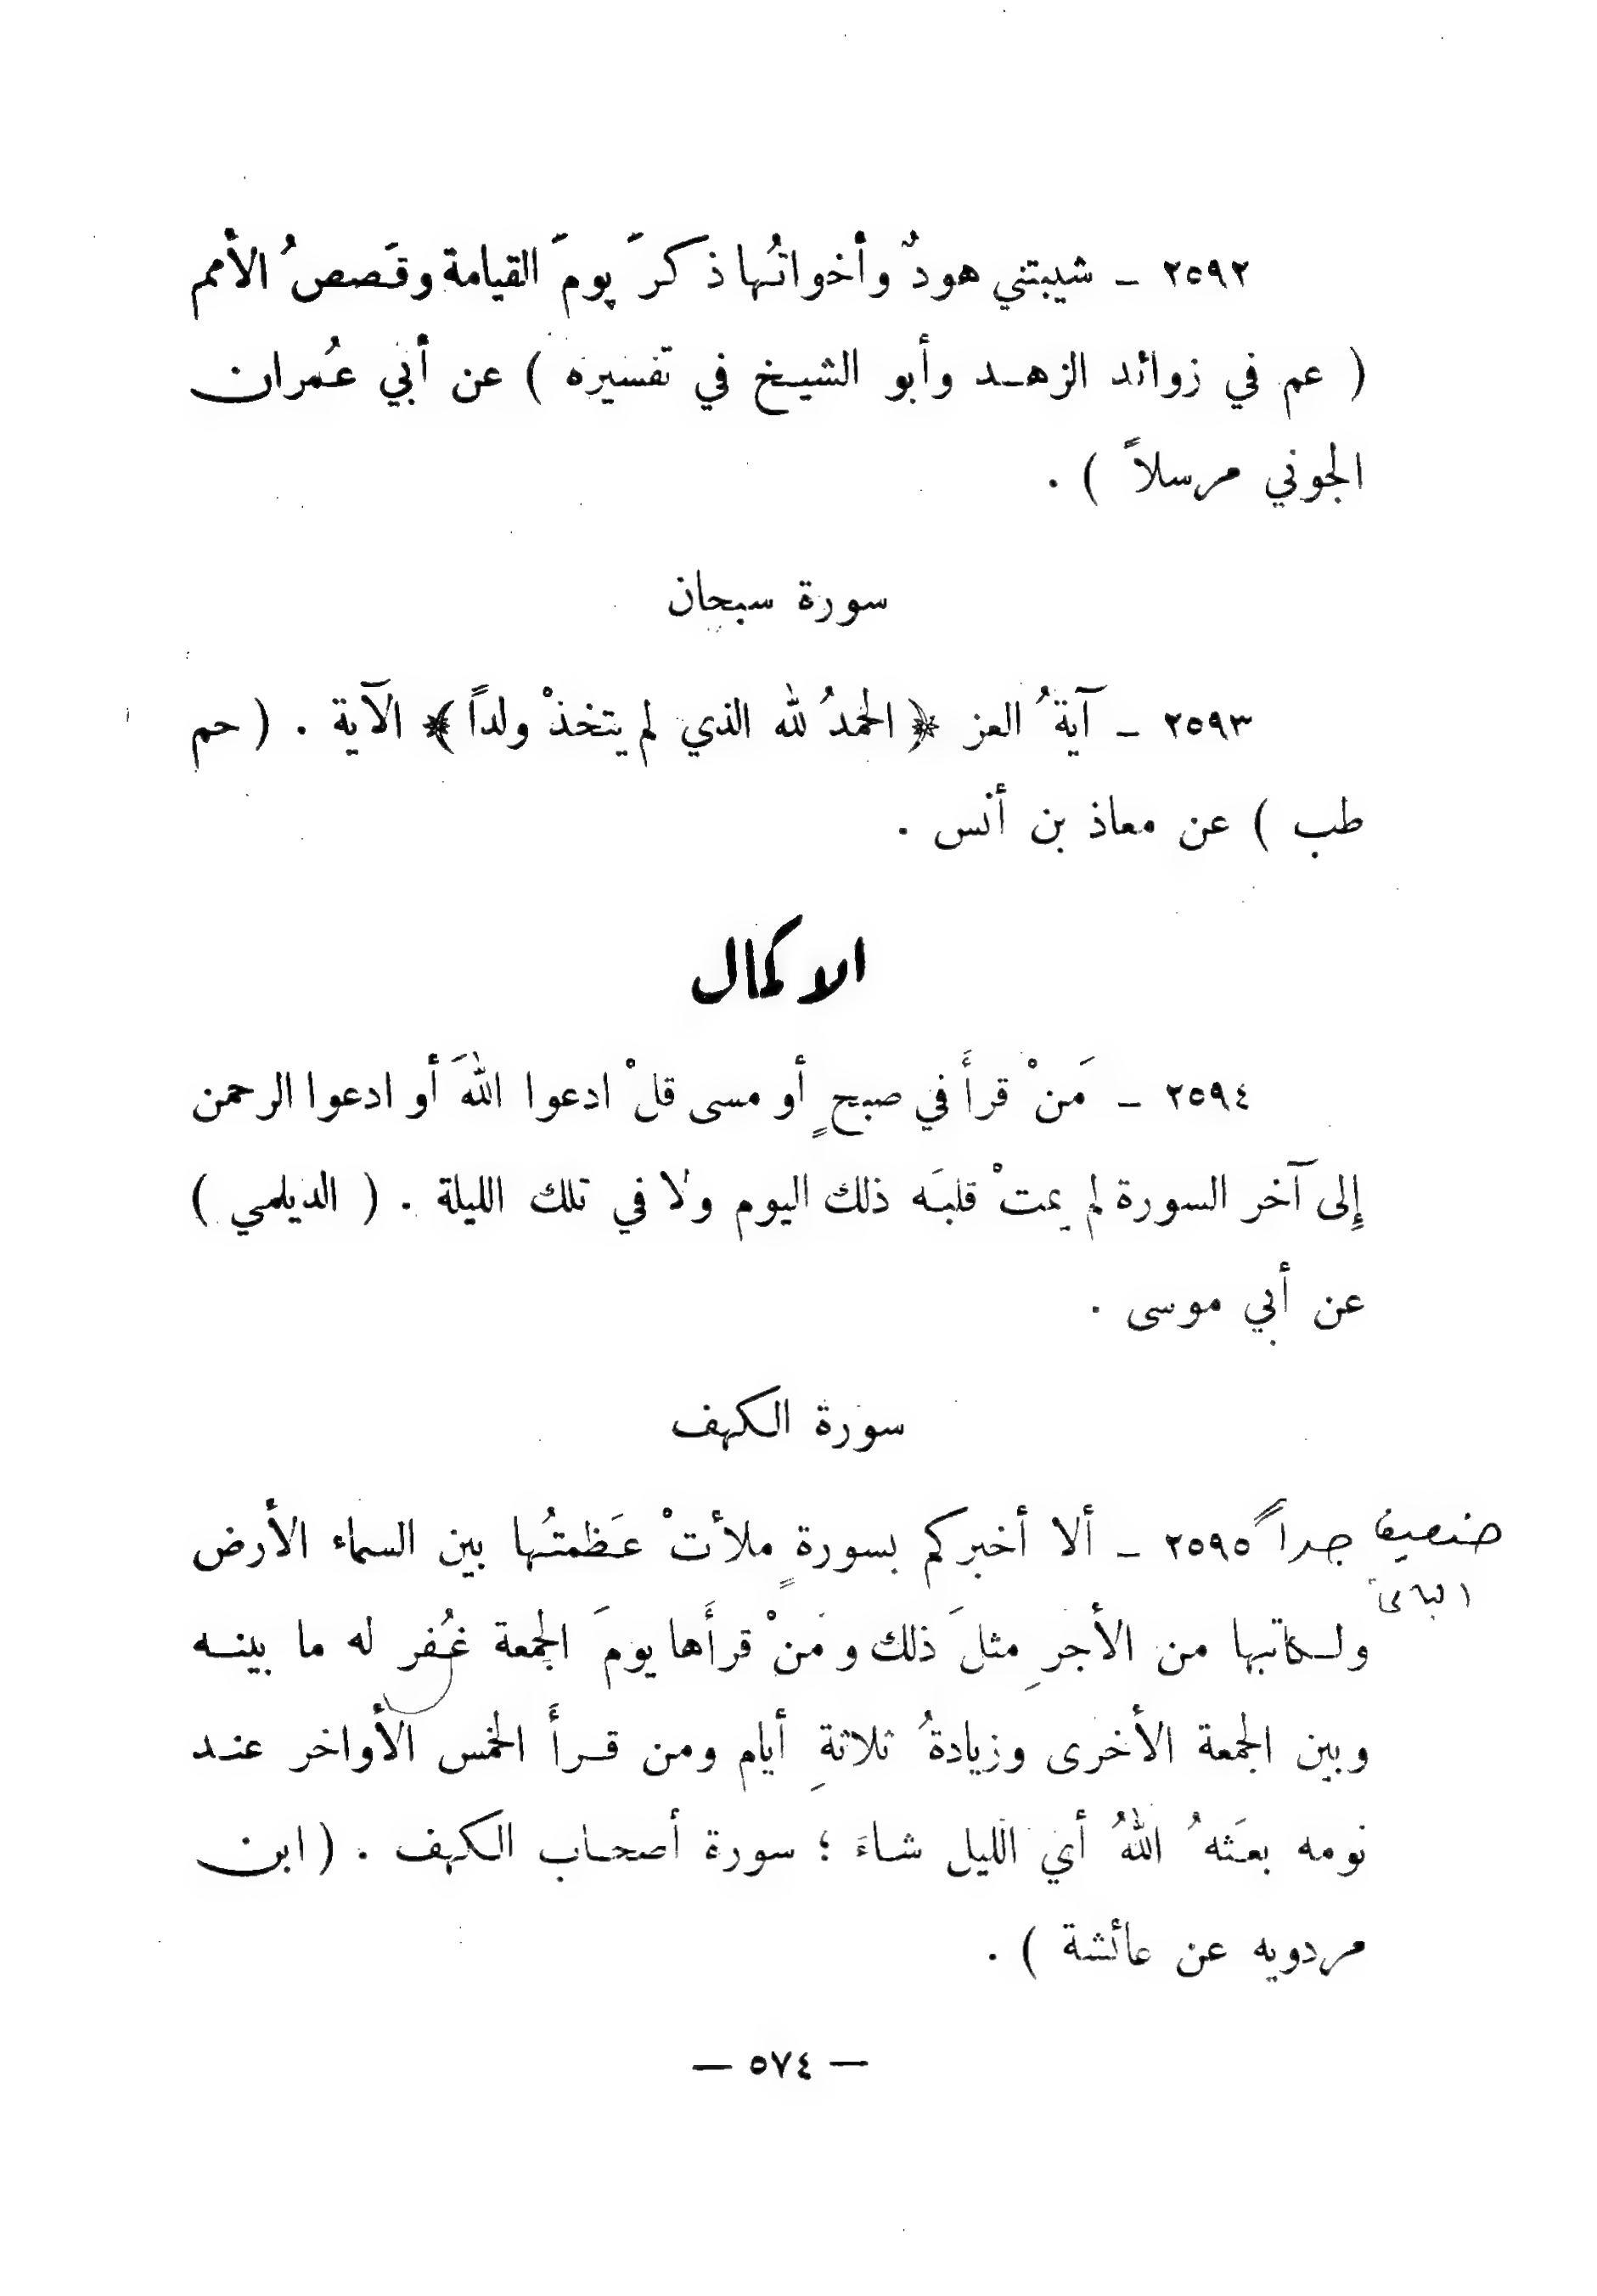 ٢٥٩٢ ـ شيبتني هودٌ وأخواتُها ذكرَ يومَ القيامة وقَصصُ الأمم
( عم في زوائد الزهـد وأبو الشيـخ في تفسيره ) عن أبي عُمران
الجوني مرسلاً ) .
سورة سبحان
٢٥٩٣ ـ آيةُ العز ﴿ الحمدُ لله الذي لم يتخذْ ولداً ﴾ الآية . ( حم
طب ) عن معاذ بن أنس .
الاكمال
٢٥٩٤ ـ مَنْ قرأَ في صبحٍ أو مسى قلْ ادعوا اللهَ أو ادعوا الرحمن
إِلى آخر السورة لم يمتْ قلبَه ذلك اليوم ولا في تلك الليلة . ( الديلمي )
عن أبي موسى .
سورة الكهف
ضعيف جداً ٢٥٩٥ ـ ألا أخبركم بسورةٍ ملأتْ عَظمتُها بين السماء الأرض
ولـكاتبها من الأجرِ مثلَ ذلك ومَنْ قرأَها يومَ الجمعة غُفر له ما بينـه
وبين الجمعة الأخرى وزيادةُ ثلاثةِ أيام ومن قـرأَ الخمس الأواخر عنـد
نومه بعَثهُ اللهُ أي الليل شاءَ ؛ سورة أصحاب الكهف . ( ابن
مردويه عن عائشة ) .
— ٥٧٤ —